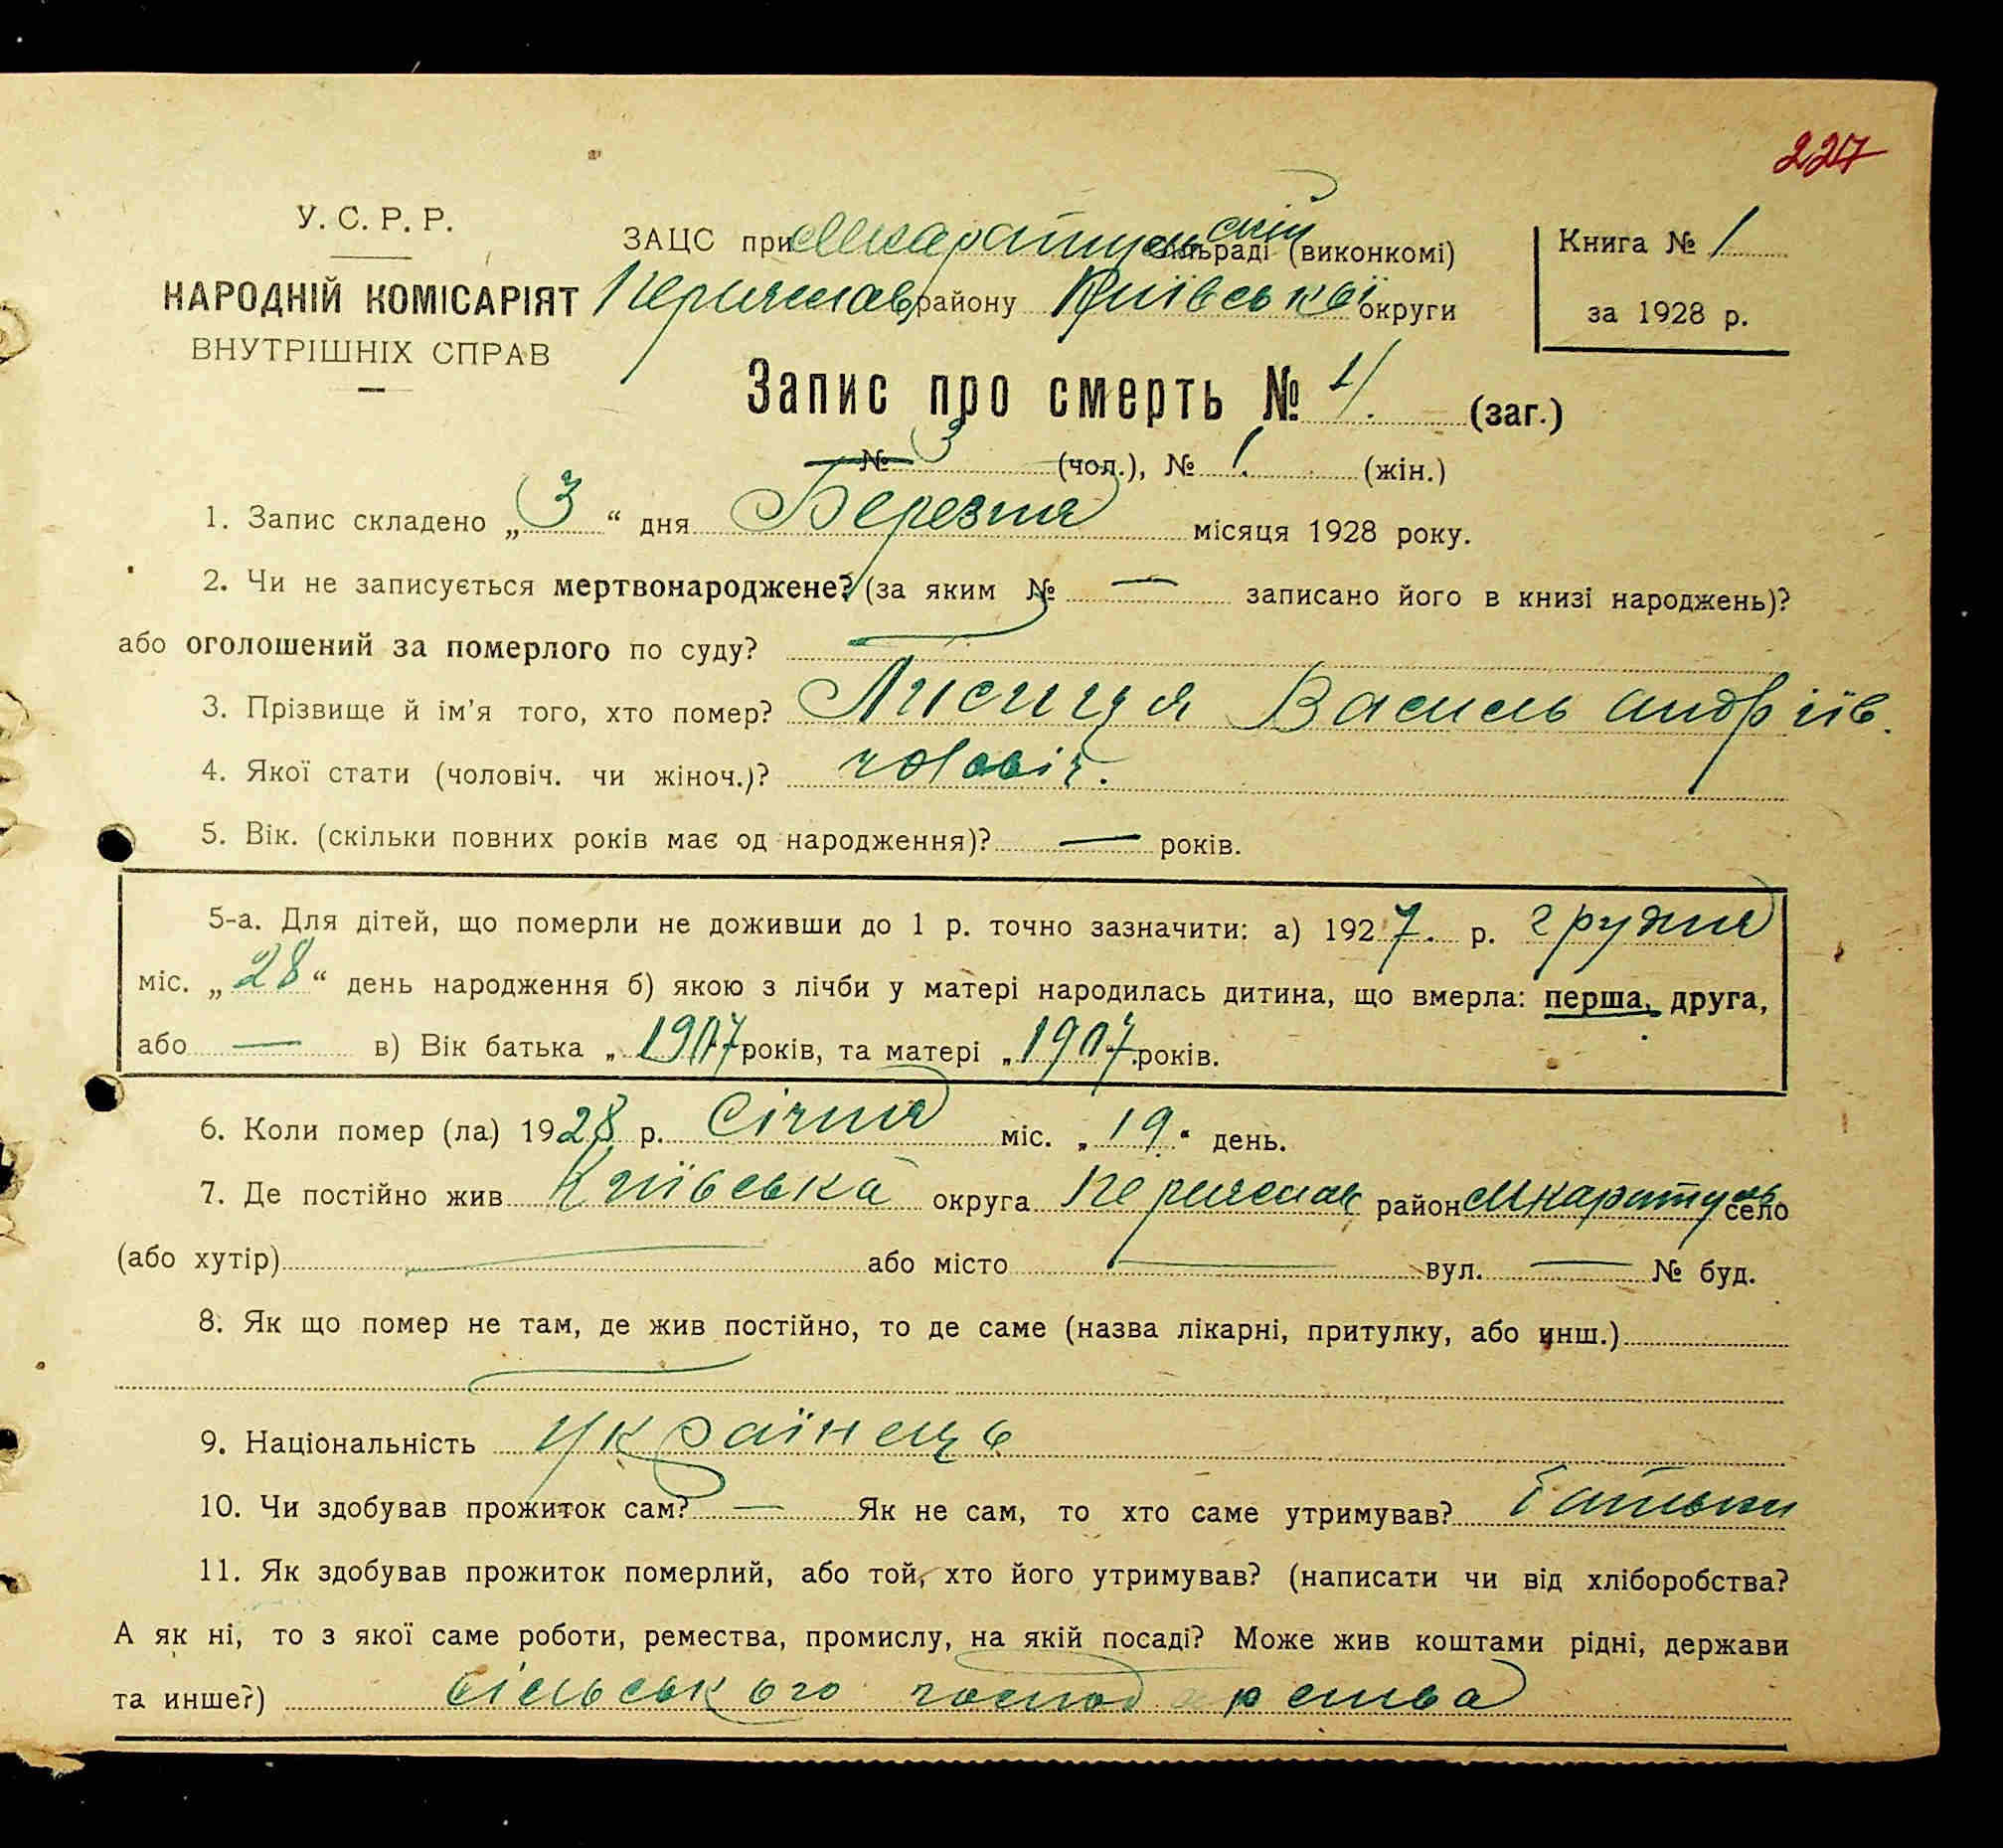 227
У. С. Р. Р.
НАРОДНІЙ КОМІСАРІЯТ
ВНУТРІШНІХ СПРАВ
ЗАЦС при сільраді (виконкомі)
Переяслав району Київської округи
Книга № 1
за 1928 р.
Запис про смерть № 4. (заг.)
№ 3 (чол.), № 1. (жін.)
1. Запис складено „3“ дня Березня місяця 1928 року.
2. Чи не записується мертвонароджене? (за яким № — записано його в книзі народжень)?
або оголошений за померлого по суду? —
3. Прізвище й ім’я того, хто помер? Лисиця Василь Андріїв.
4. Якої стати (чоловіч. чи жіноч.)? чоловіч.
5. Вік. (скільки повних років має од народження)? — років.
5-а. Для дітей, що померли не доживши до 1 р. точно зазначити: а) 1927. р. грудня
міс. „28“ день народження б) якою з лічби у матері народилась дитина, що вмерла: перша, друга,
або — в) Вік батька „1907 років, та матері „1907 років.
6. Коли помер (ла) 1928 р. Січня міс. „19“ день.
7. Де постійно жив Київська округа район село
(або хутір) — або місто — вул. — № буд.
8. Як що помер не там, де жив постійно, то де саме (назва лікарні, притулку, або инш.)
—
9. Національність Українець
10. Чи здобував прожиток сам? — Як не сам, то хто саме утримував? батьки
11. Як здобував прожиток померлий, або той, хто його утримував? (написати чи від хліборобства?
А як ні, то з якої саме роботи, ремества, промислу, на якій посаді? Може жив коштами рідні, держави
та инше?) сільського господарства